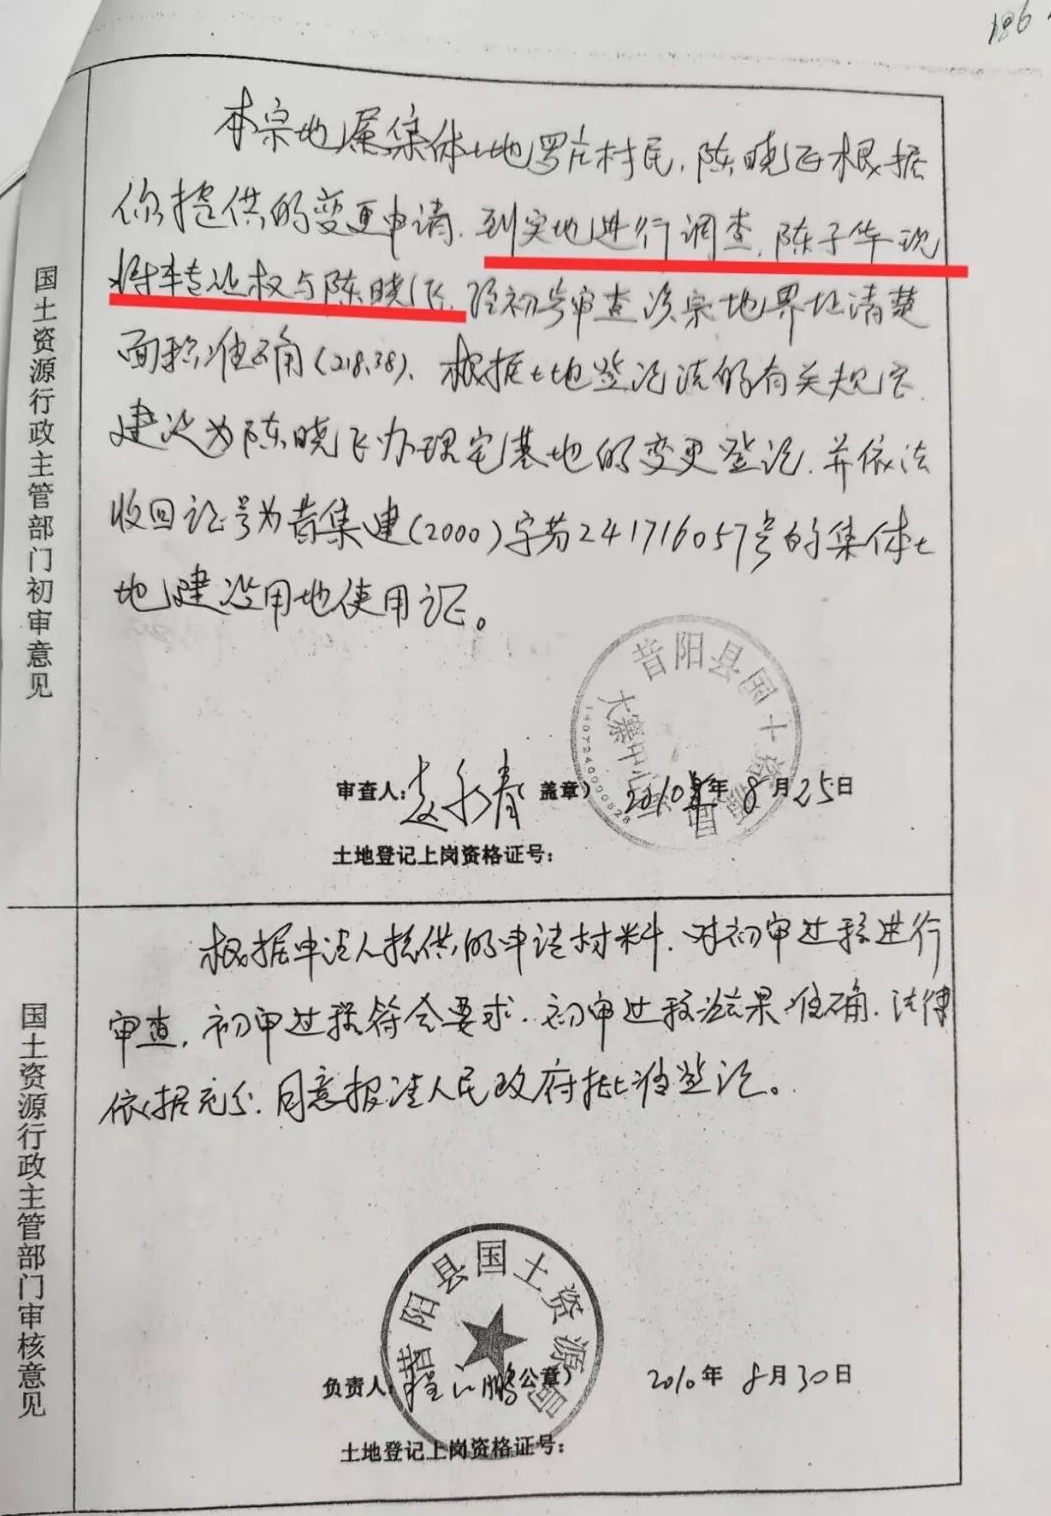 196
国土资源行政主管部门初审意见
本宗地属集体土地罗庄村民,陈晓飞根据
你提供的变更申请,到实地进行调查,陈子华现
将本专让权与陈晓飞,经初步审查该宗地界址清楚
面积准确(218.38),根据土地登记法的有关规定
建议为陈晓飞办理宅基地的变更登记,并依法
收回证号为昔集建(2000)字第241716057号的集体土
地建设用地使用证。
昔阳县国土资源
大寨中心
1407240000828
审查人:赵永春 盖章) 2010年8月25日
土地登记上岗资格证号:
国土资源行政主管部门审核意见
根据申请人提供的申请材料,对初审过程进行
审查,初审过程符合要求,初审过程结果准确,法律
依据充分,同意报请人民政府批准登记。
昔阳县国土资源局
负责人:程 鹏 公章) 2010年8月30日
土地登记上岗资格证号: